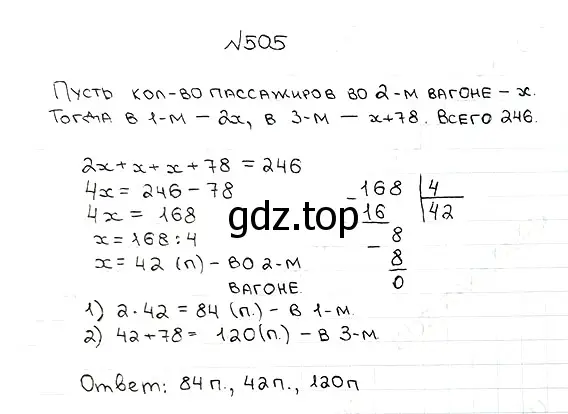 №505
Пусть кол-во пассажиров во 2-м вагоне - х.
Тогда в 1-м - 2х, в 3-м - х+78. Всего 246.
2х+х+х+78=246
4х= 246-78
4х = 168
х=168:4
х= 42 (п) - во 2-м
вагоне.
168 4
16 42
8
8
0
gdz.top
1) 2·42 = 84 (п.) - в 1-м.
2) 42+78= 120(п.) - в 3-м
Ответ: 84п., 42п., 120п